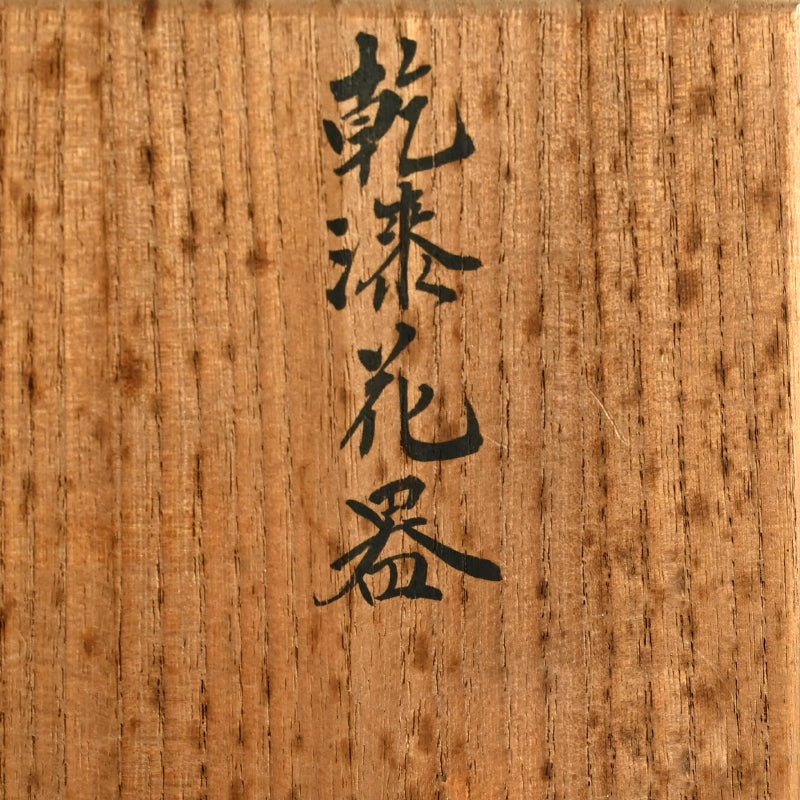 乾漆花器